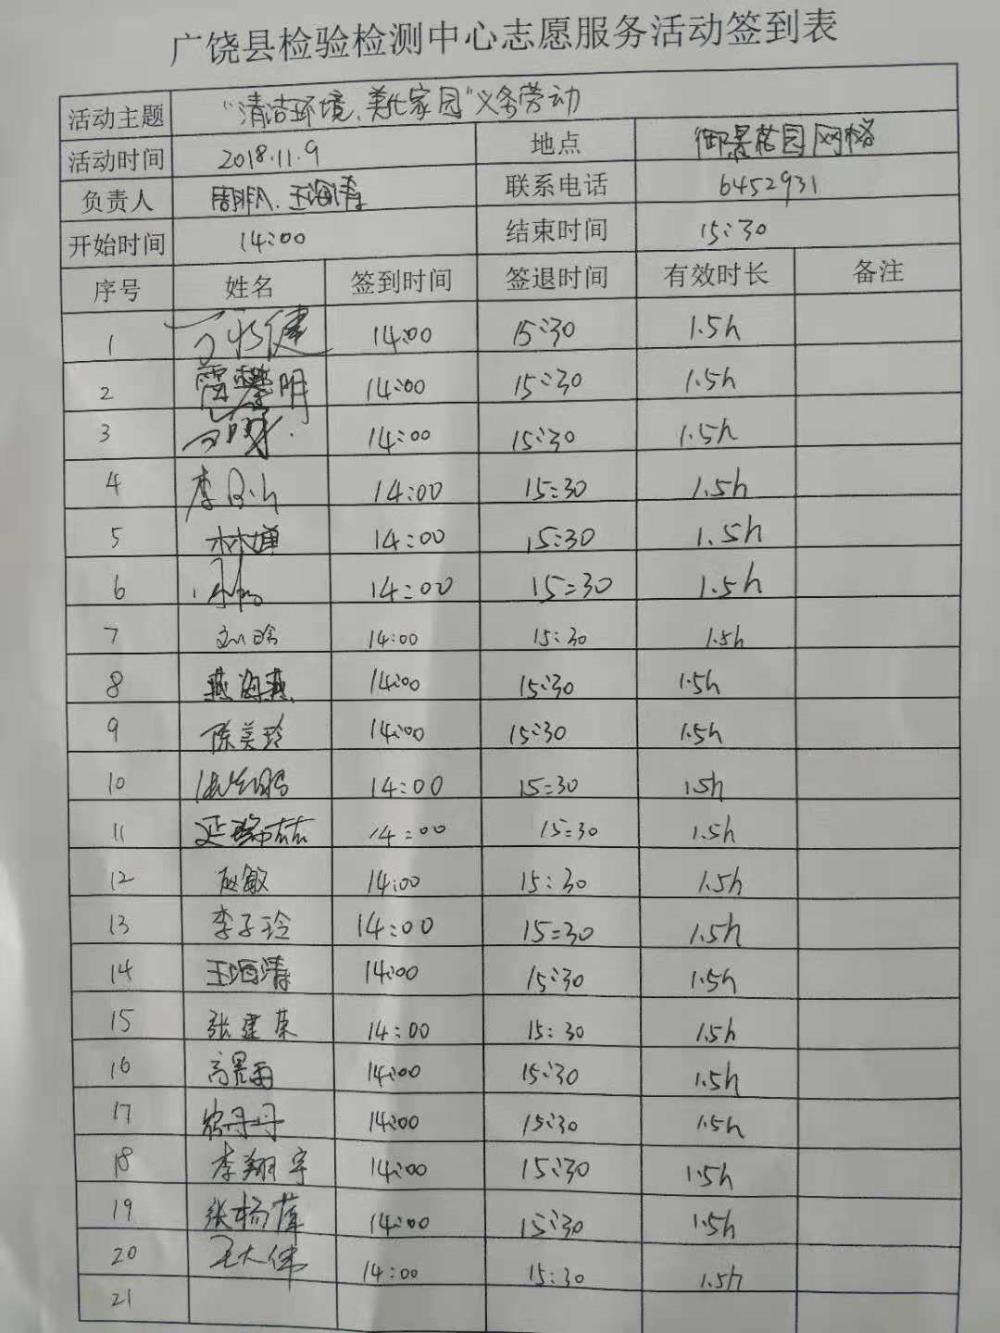 广饶县检验检测中心志愿服务活动签到表
活动主题 "清洁环境、美化家园"义务劳动
活动时间 2018.11.9 地点 御景花园网格
负责人 王海涛 联系电话 6452931
开始时间 14:00 结束时间 15:30
序号 姓名 签到时间 签退时间 有效时长 备注
1 14:00 15:30 1.5h
2 14:00 15:30 1.5h
3 14:00 15:30 1.5h
4 14:00 15:30 1.5h
5 林婵 14:00 15:30 1.5h
6 14:00 15:30 1.5h
7 刘玲 14:00 15:30 1.5h
8 燕海燕 14:00 15:30 1.5h
9 陈美玲 14:00 15:30 1.5h
10 14:00 15:30 1.5h
11 14:00 15:30 1.5h
12 赵敏 14:00 15:30 1.5h
13 李子玲 14:00 15:30 1.5h
14 王海涛 14:00 15:30 1.5h
15 张建荣 14:00 15:30 1.5h
16 14:00 15:30 1.5h
17 14:00 15:30 1.5h
18 李翔宇 14:00 15:30 1.5h
19 张杨萍 14:00 15:30 1.5h
20 王大伟 14:00 15:30 1.5h
21